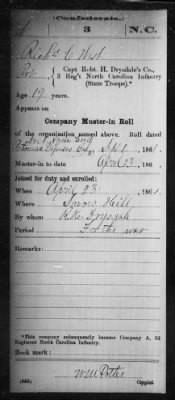 Confederate.
3 N.C.
Richd L. West
Capt. Robt. H. Drysdale's Co.,
3 Reg't North Carolina Infantry
(State Troops).*
Age 19 years.
Appears on
Company Muster-in Roll
of the organization named above. Roll dated
Sept 1, 1861.
Muster-in to date April 23, 1861.
Joined for duty and enrolled:
When April 23, 1861.
Where Snow Hill
By whom R.H. Drysdale
Period For the war
Remarks:
*This company subsequently became Company A, 3d
Regiment North Carolina Infantry.
Book mark:
Copyist.